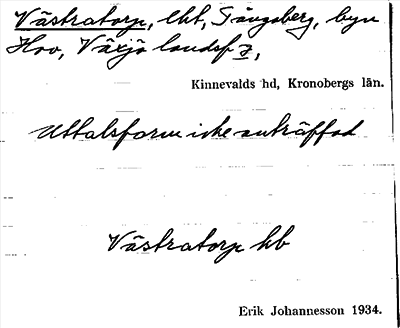 Västratorp, lht, Sångsberg, byn
Hov, Växjö landsf z,
Kinnevalds hd, Kronobergs län.
Uttalsform icke anträffad
Västratorp hb
Erik Johannesson 1934.